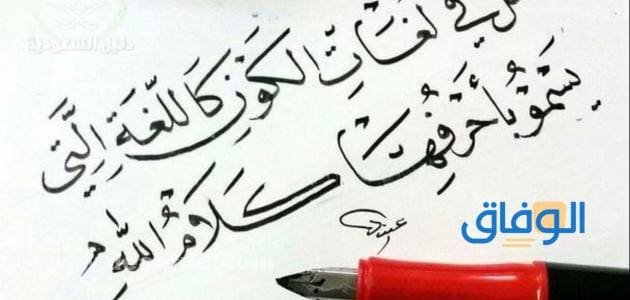 دليل السعودية
في لغَاتِ الكَوْنِ كَاللّغَةِ الَّتي
يَسْمُو بأَحْرُفِهَا كَلَامُ اللهِ
الوفاق